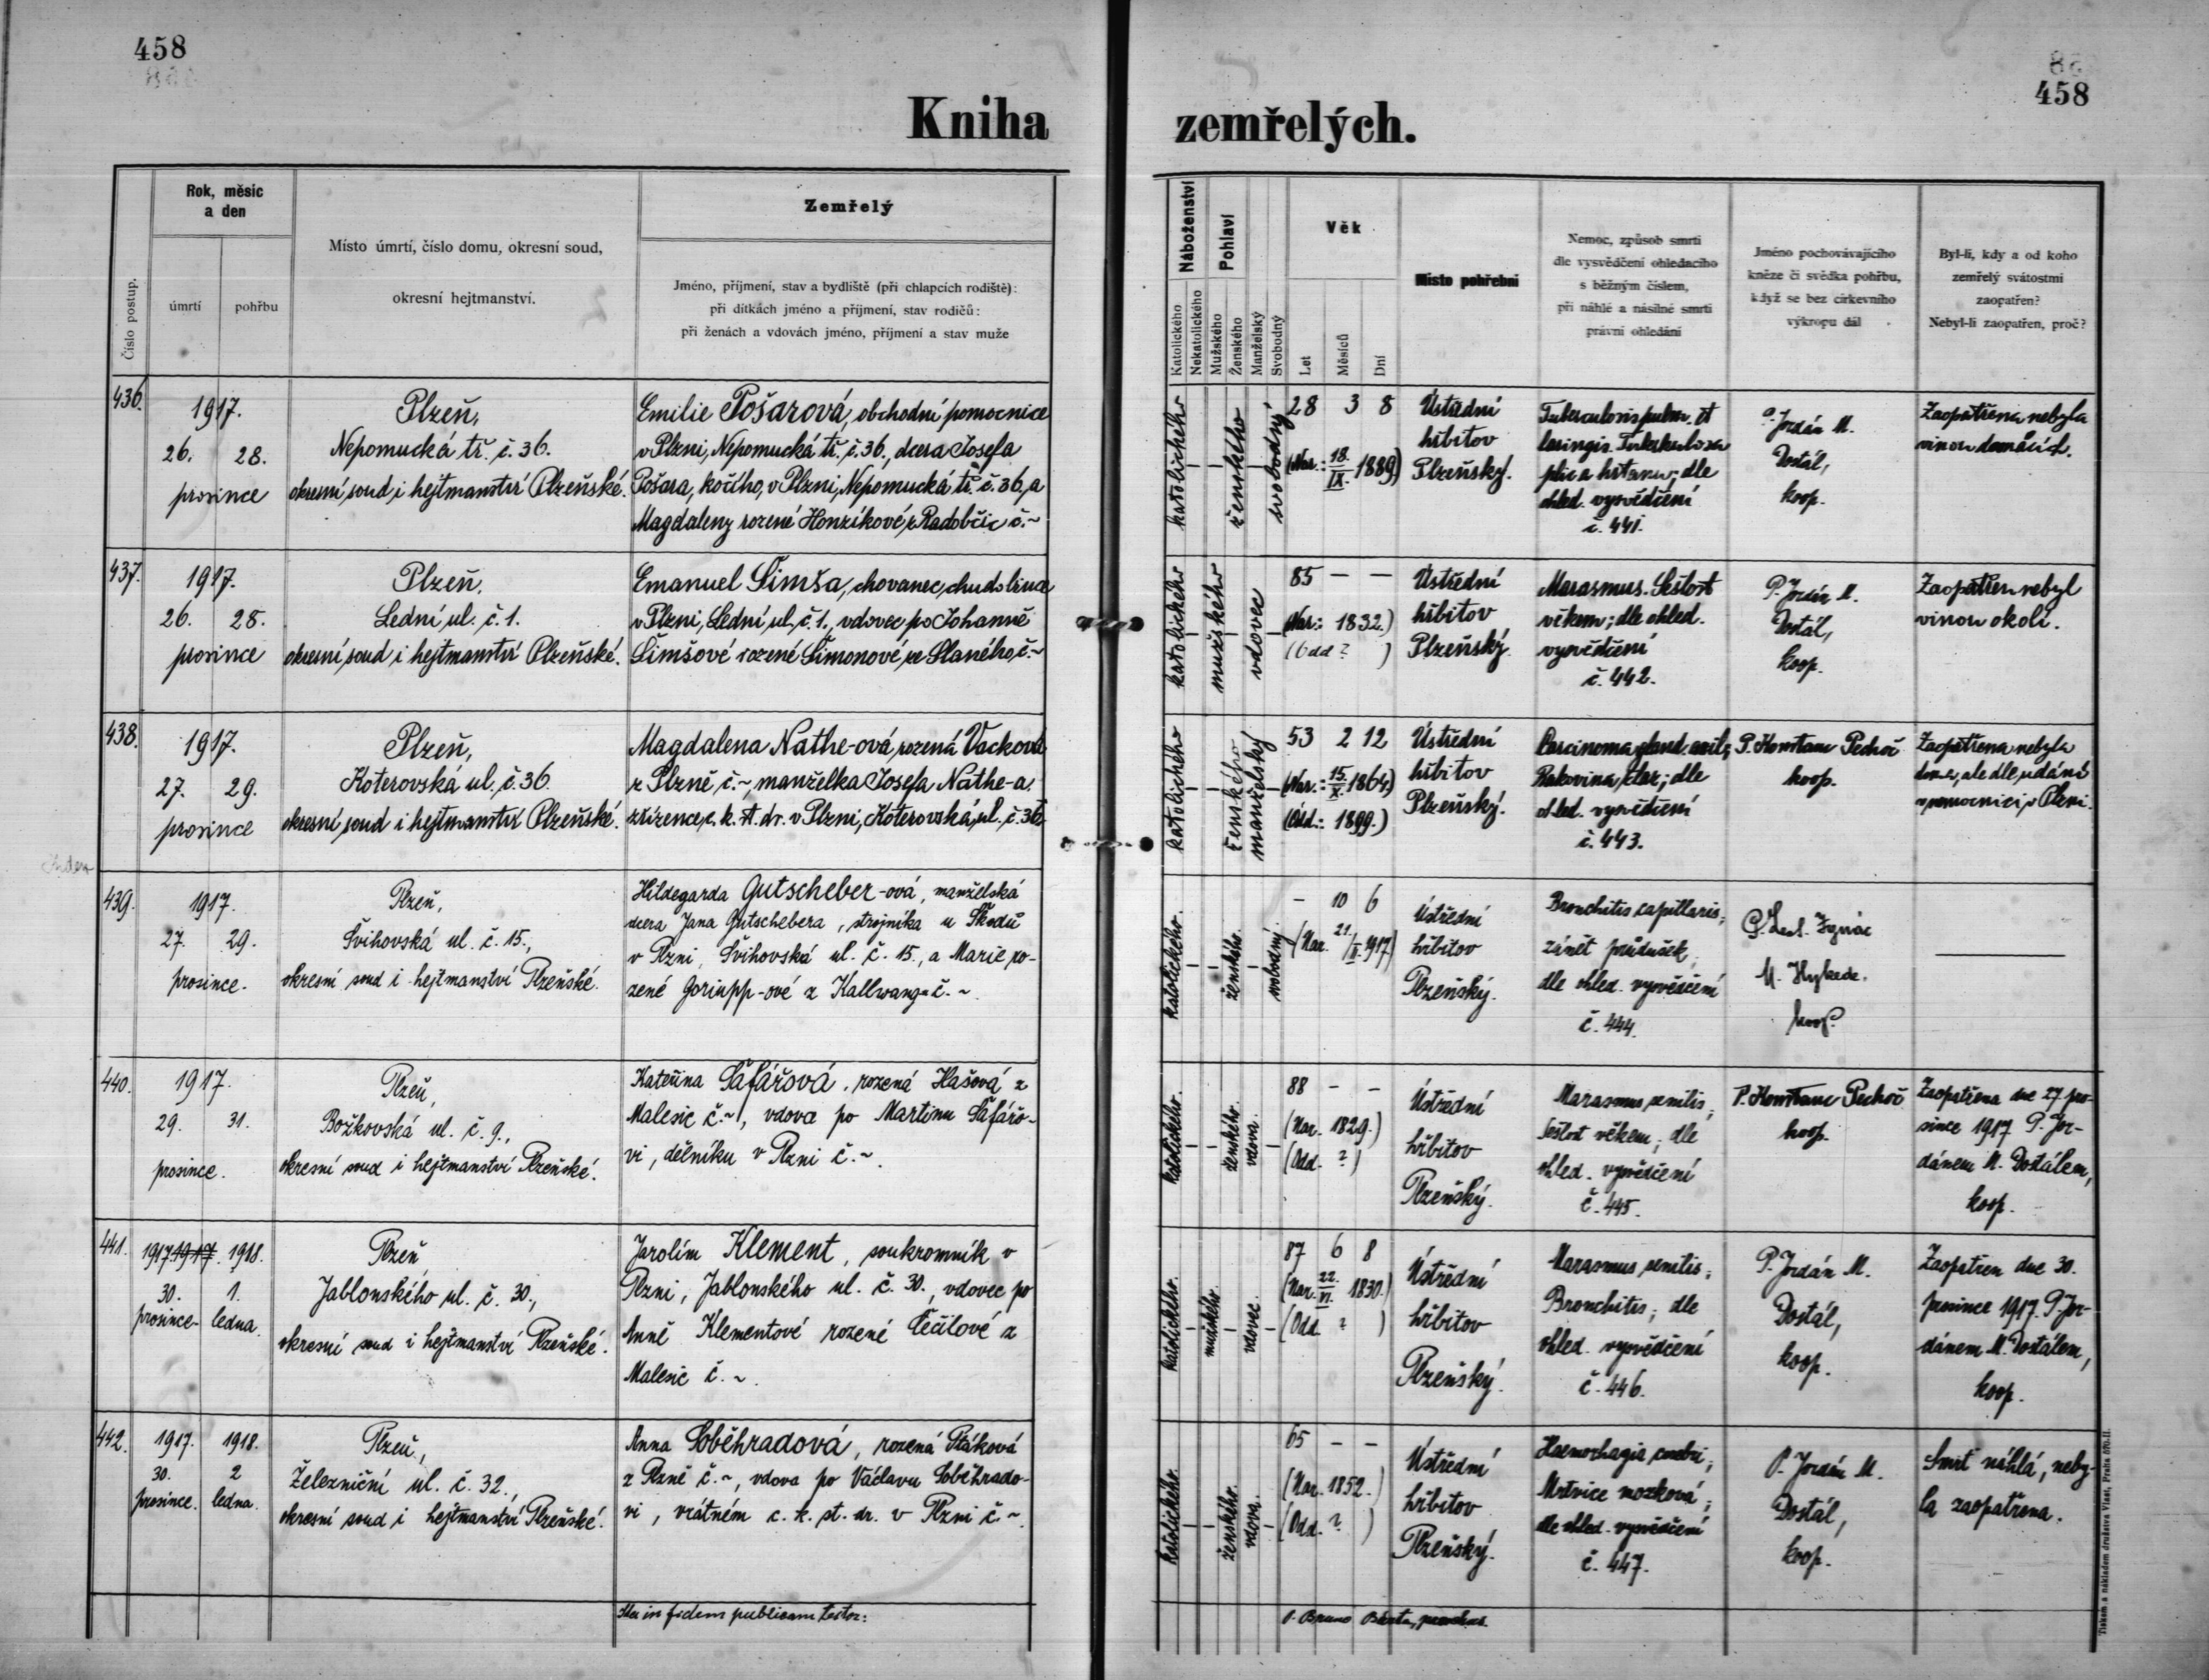 458
458
Kniha zemřelých.
Číslo postup.
Rok, měsíc
a den
úmrtí
pohřbu
Místo úmrtí, číslo domu, okresní soud,
okresní hejtmanství.
Zemřelý
Jméno, příjmení, stav a bydliště (při chlapcích rodiště):
při dítkách jméno a příjmení, stav rodičů:
při ženách a vdovách jméno, příjmení a stav muže
Náboženství
Katolického
Nekatolického
Pohlaví
Mužského
Ženského
Manželský
Svobodný
Věk
Let
Měsíců
Dní
Místo pohřební
Nemoc, způsob smrti
dle vysvědčení ohledacího
s běžným číslem,
při náhlé a násilné smrti
právní ohledání
Jméno pochovávajícího
kněze či svědka pohřbu,
když se bez církevního
výkropu dál
Byl-li, kdy a od koho
zemřelý svátostmi
zaopatřen?
Nebyl-li zaopatřen, proč?
436.
1917.
26. 28.
prosince
Plzeň,
Nepomucká tř. č. 36.
okresní soud i hejtmanství Plzeňské.
Emilie Pošarová, obchodní pomocnice
v Plzni, Nepomucká tř. č. 36., dcera Josefa
Pošara, kočího, v Plzni, Nepomucká tř. č. 36, a
Magdaleny rozené Honzíkové z Radobčic č. ~
katolického
ženského
svobodný
28 3 8
(Nar.: 18./IX. 1889)
Ústřední
hřbitov
Plzeňský.
Tuberculosis pulm. et
laringis. Tuberkulosa
plic a hrtanu; dle
ohled. vysvědčení
č. 441.
P. Jordán M.
Dostál,
koop.
Zaopatřena nebyla
vinou domácích.
437.
1917.
26. 28.
prosince
Plzeň,
Lední ul. č. 1.
okresní soud i hejtmanství Plzeňské.
Emanuel Šimša, chovanec chudobince
v Plzni, Lední ul. č. 1., vdovec po Johanně
Šimšové rozené Šimonové ze Slaného, č. ~
katolického
mužského
vdovec
85 — —
(Nar.: 1832.)
(Odd ? )
Ústřední
hřbitov
Plzeňský.
Marasmus. Sešlost
věkem; dle ohled.
vysvědčení
č. 442.
P. Jordán M.
Dostál,
koop.
Zaopatřen nebyl
vinou okolí.
438.
1917.
27. 29.
prosince
Plzeň,
Koterovská ul. č. 36.
okresní soud i hejtmanství Plzeňské.
Magdalena Nathe-ová, rozená Vacková
z Plzně č. ~, manželka Josefa Nathe-a,
zřízence c. k. st. dr. v Plzni, Koterovská ul. č. 36.
katolického
ženského
manželský
53 2 12
(Nar.: 15./X. 1864)
(Odd.: 1899.)
Ústřední
hřbitov
Plzeňský.
Carcinoma gland.
Rakovina žlaz; dle
ohled. vysvědčení
č. 443.
P. Konstanc Pechoč
koop.
Zaopatřena nebyla
doma, ale dle udání
v nemocnici v Plzni.
439.
1917.
27. 29.
prosince.
Plzeň,
Švihovská ul. č. 15.,
okresní soud i hejtmanství Plzeňské.
Hildegarda Gutscheber-ová, manželská
dcera Jana Gutschebera, strojníka u Škodů
v Plzni, Švihovská ul. č. 15., a Marie ro-
zené Goriupp-ové z Kallwangu č. ~
katolického.
ženského.
svobodný.
- 10 6
(Nar. 21./II. 1917)
Ústřední
hřbitov
Plzeňský.
Bronchitis capillaris;
zánět průdušek,
dle ohled. vysvědčení
č. 444.
Ignác
M.
koop.
440.
1917.
29. 31.
prosince.
Plzeň,
Božkovská ul. č. 9.,
okresní soud i hejtmanství Plzeňské.
Kateřina Šafářová, rozená Hašová z
Malesic č. ~, vdova po Martinu Šafářo-
vi, dělníku v Plzni č. ~.
katolického.
ženského.
vdova.
88 - -
(Nar. 1829.)
(Odd. ?)
Ústřední
hřbitov
Plzeňský.
Marasmus senilis;
sešlost věkem; dle
ohled. vysvědčení
č. 445.
P. Konstanc Pechoč
koop.
Zaopatřena dne 27. pro-
since 1917 P. Jor-
dánem M. Dostálem,
koop.
441.
1917. 1917. 1918.
30. 1.
prosince- ledna.
Plzeň
Jablonského ul. č. 30.,
okresní soud i hejtmanství Plzeňské.
Jarolím Klement, soukromník v
Plzni, Jablonského ul. č. 30., vdovec po
Anně Klementové rozené Čečilové z
Malesic č. ~.
katolického.
mužského.
vdovec.
87 6 8
(Nar. 22./VI. 1830.)
(Odd. ? )
Ústřední
hřbitov
Plzeňský.
Marasmus senilis;
Bronchitis; dle
ohled. vysvědčení
č. 446.
P. Jordán M.
Dostál,
koop.
Zaopatřen dne 30.
prosince 1917. P. Jor-
dánem M. Dostálem,
koop.
442.
1917. 1918.
30. 2
prosince. ledna.
Plzeň,
Železniční ul. č. 32.,
okresní soud i hejtmanství Plzeňské.
Anna Soběhradová, rozená Ptáková
z Plzně č. ~, vdova po Václavu Soběhrado-
vi, vrátném c. k. st. dr. v Plzni č. ~.
katolického.
ženského.
vdova.
65 - -
(Nar. 1852.)
(Odd. ? )
Ústřední
hřbitov
Plzeňský.
Haemorhagia cerebri;
Mrtvice mozková;
dle ohled. vysvědčení
č. 447.
P. Jordán M.
Dostál,
koop.
Smrt náhlá, neby-
la zaopatřena.
in fidem publicam testor:
P. Bruno Bárta, parochus.